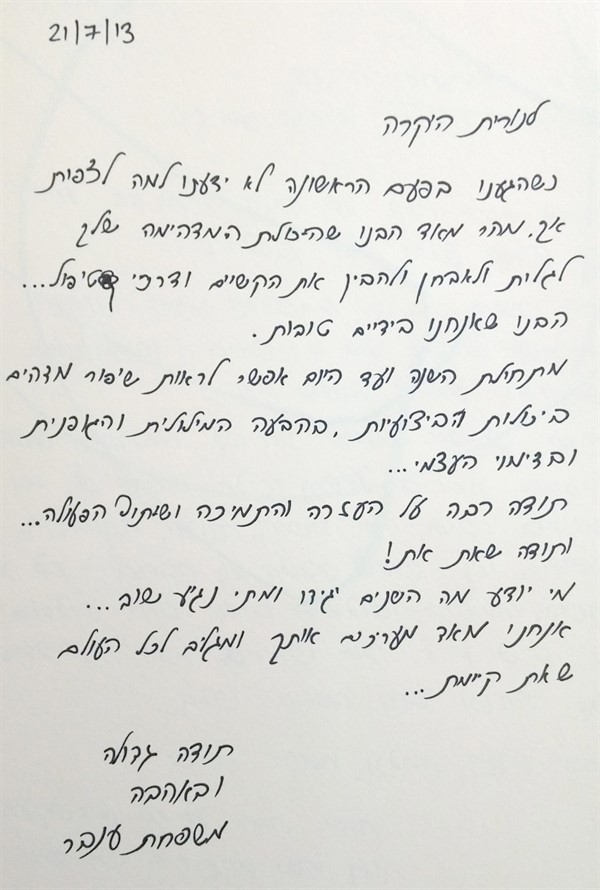 21/7/13
לנורית היקרה
כשהגענו בפעם הראשונה לא ידענו למה לצפות
אך, מהר מאד הבנו שהיכולת המדהימה שלך
לגלות ולאבחן ולהבין את הקשיים ודרכי טיפול...
הבנו שאנחנו בידיים טובות.
מתחילת השנה ועד היום אפשר לראות שיפור מדהים
ביכולות הביצועיות, בהבעה המילולית והגופנית
ובדימוי העצמי...
תודה רבה על העזרה והתמיכה ושיתוף הפעולה...
ותודה שאת את!
מי יודע מה השנים יגידו ומתי נגיע שוב...
אנחנו מאד מעריכים אותך ומגלים לכל העולם
שאת קיימת...
תודה גדולה
ובאהבה
משפחת ענבר